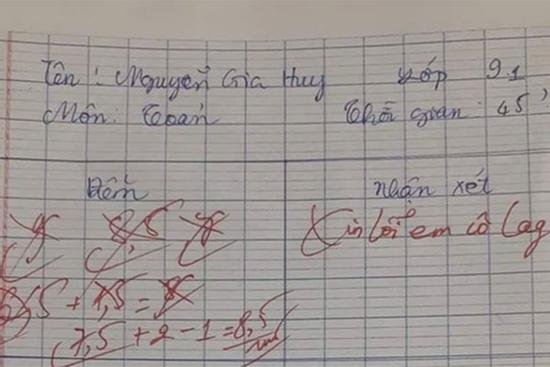 Tên : Nguyễn Gia Huy Lớp 9.1
Môn: Toán Thời gian : 45'
Điểm nhận xét
9 8,5 Xin lỗi em cô lag
+ 1,5 = 8
7,5 + 2 - 1 = 8,5